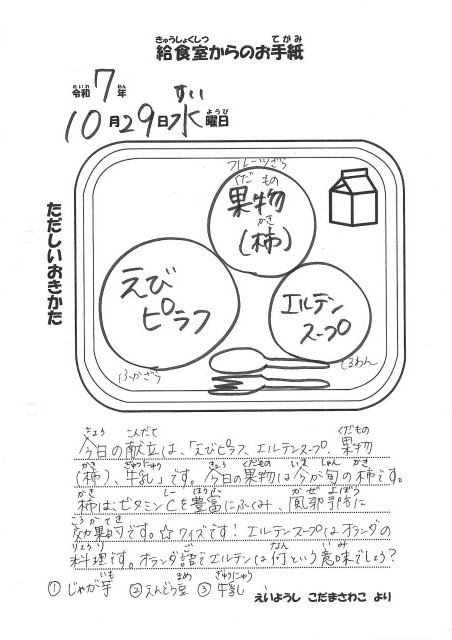 給食室からのお手紙
令和7年
10月29日水曜日
ただしいおきかた
フルーツざら
果物
(柿)
えび
ピラフ
エルテン
スープ
ふかざら
しるわん
今日の献立は、「えびピラフ、エルテンスープ、果物
(柿)、牛乳」です。今日の果物は今が旬の柿です。
柿は、ビタミンCを豊富にふくみ、風邪予防に
効果的です。☆クイズです!エルテンスープはオランダの
料理です。オランダ語でエルテンは何という意味でしょう?
①じゃが芋 ②えんどう豆 ③牛乳
えいようし こだまさわこ より